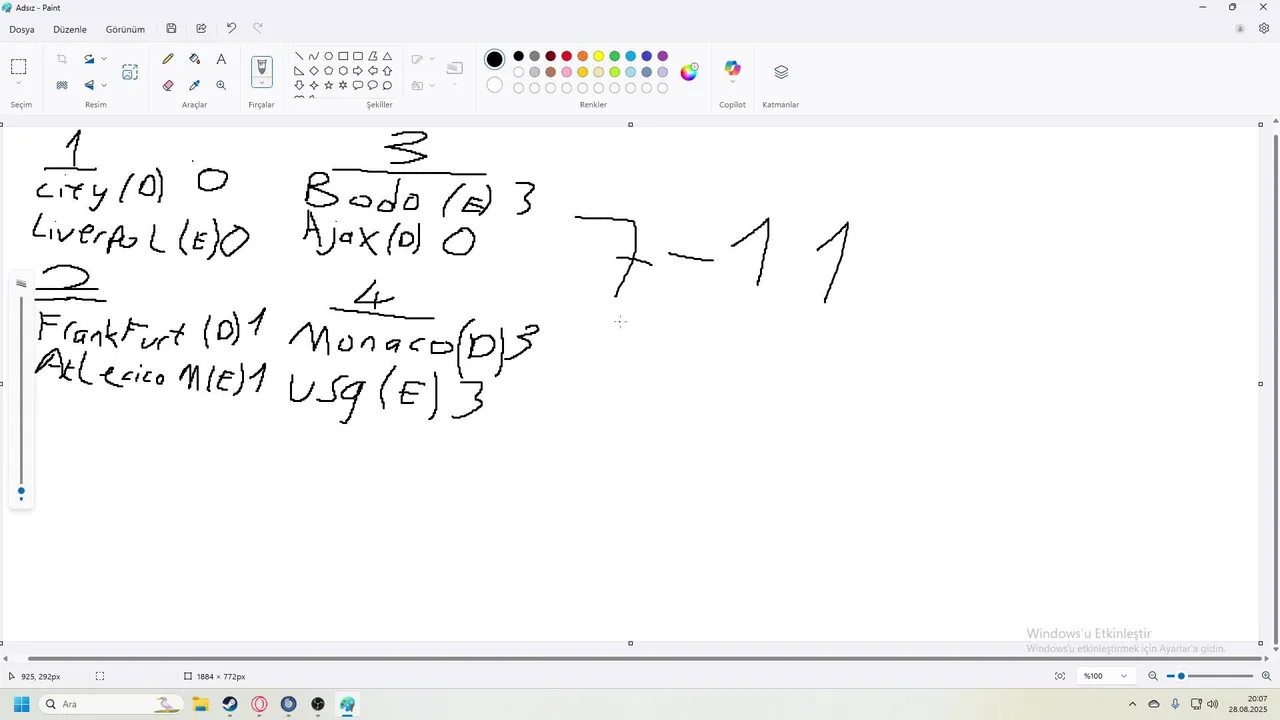 Adsız - Paint
Dosya Düzenle Görünüm
Seçim Resim Araçlar Fırçalar Şekiller Renkler Copilot Katmanlar
1
City (D) 0
Liverpol (E) 0
2
Frankfurt (D) 1
Atletico M (E) 1
3
Bodo (E) 3
Ajax (D) 0
4
Monaco (D) 3
USg (E) 3
7-11
Windows'u Etkinleştir
Windows'u etkinleştirmek için Ayarlar'a gidin.
925, 292px 1884 × 772px %100
Ara 20:07
28.08.2025